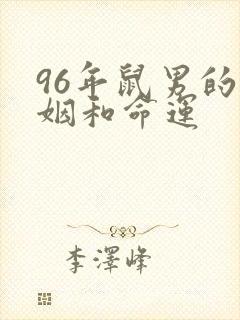 96年鼠男的
姻和命运
李澤峰